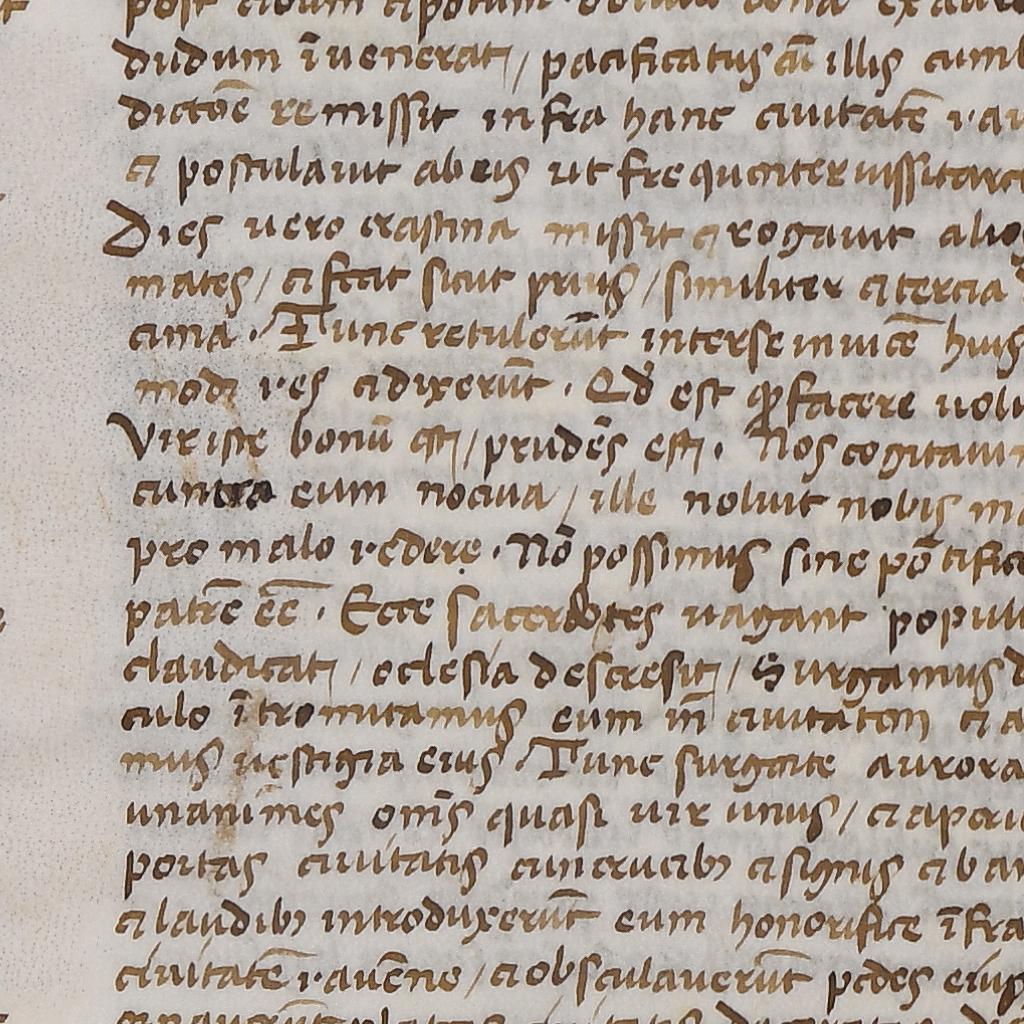 post cibum et potum
dudum īvenerat / pacificatus cū illis cum
dictōe remissit infra hanc civitatē
et postulavit ab eis ut frequenter vissitare
Dies vero crastina missit et rogavit alios
mates / et fecit sicut prius / similiter et tercia
cima . Tunc retulerūt inter se invicē huius
modi res et dixerūt . Qd est qd facere
Vir iste bonū est / prudēs est . Nos cogitavi
cuntra eum nociva / ille noluit nobis ma
pro malo redere . Nō possimus sine pōtifice
patrē eē . Ecce sacerdotes vagant popul
claudicat / eclesia descresit / Surgamus
culo ītromitamus eum in civitatem et a
mus vestigia eius / Tunc surgente aurora
unanimes oms quasi vir unus / et aperu
portas civitatis cun crucib3 et signis et ban
et laudib3 introduxerūt eum honorifice īfra
civitatē ravēne / et obsculaverūt pedes eius